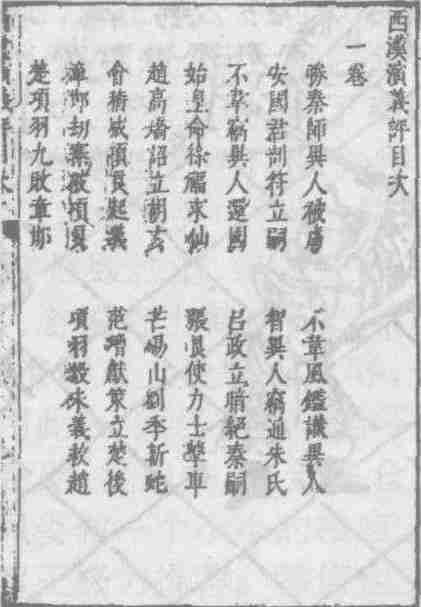 西漢演義評目次
一卷
勝秦師異人被虜　不韋風鑑識異人
安國君剖符立嗣　智異人竊通朱氏
不韋竊異人還國　呂政立暗絕秦嗣
始皇命徐福求仙　張良使力士擊車
趙高矯詔立胡亥　芒碭山劉季斬蛇
會稽城項梁起義　范增獻策立楚後
章邯劫寨破項梁　項羽殺宋義救趙
楚項羽九敗章邯